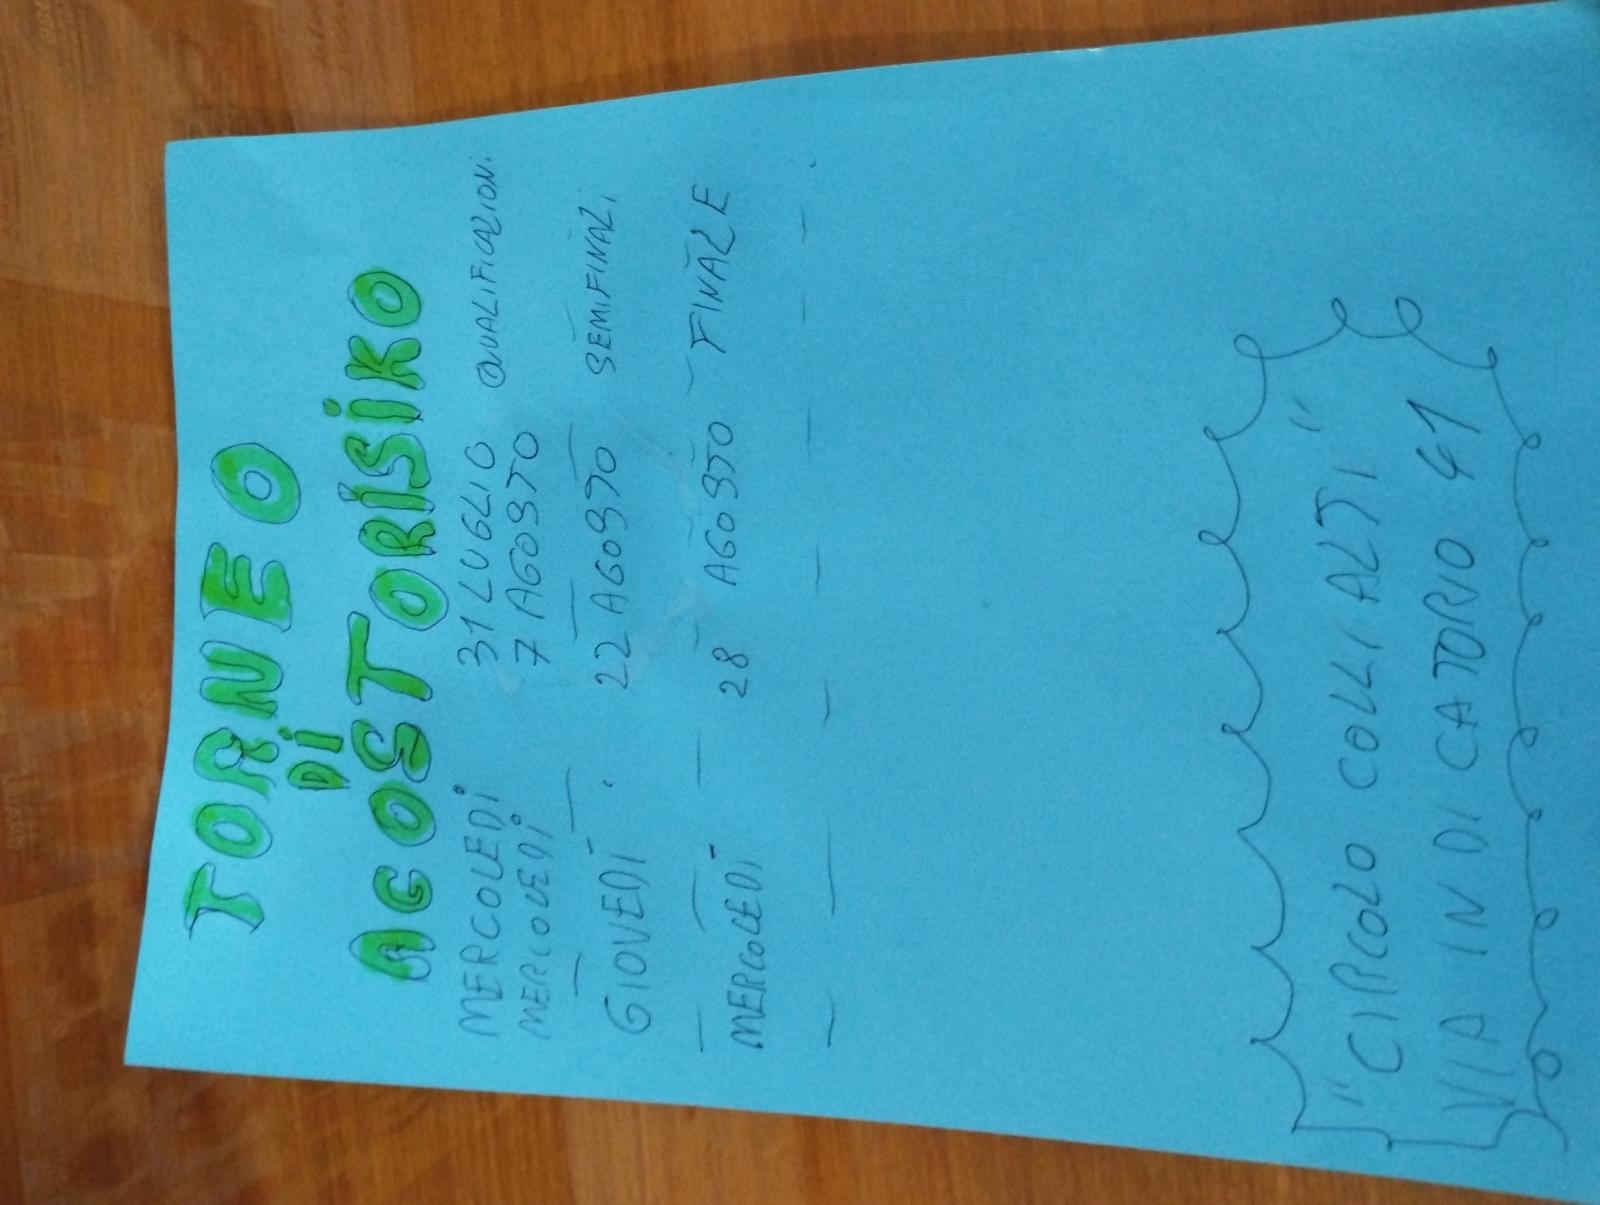 TORNEO
DI
AGOSTORISIKO
MERCOLEDI 31 LUGLIO QUALIFICAZIONI
MERCOLEDI 7 AGOSTO
GIOVEDI 22 AGOSTO SEMIFINALI
MERCOLEDI 28 AGOSTO FINALE
"CIRCOLO COLLI ALTI"
VIA IN DI CATORIO 41